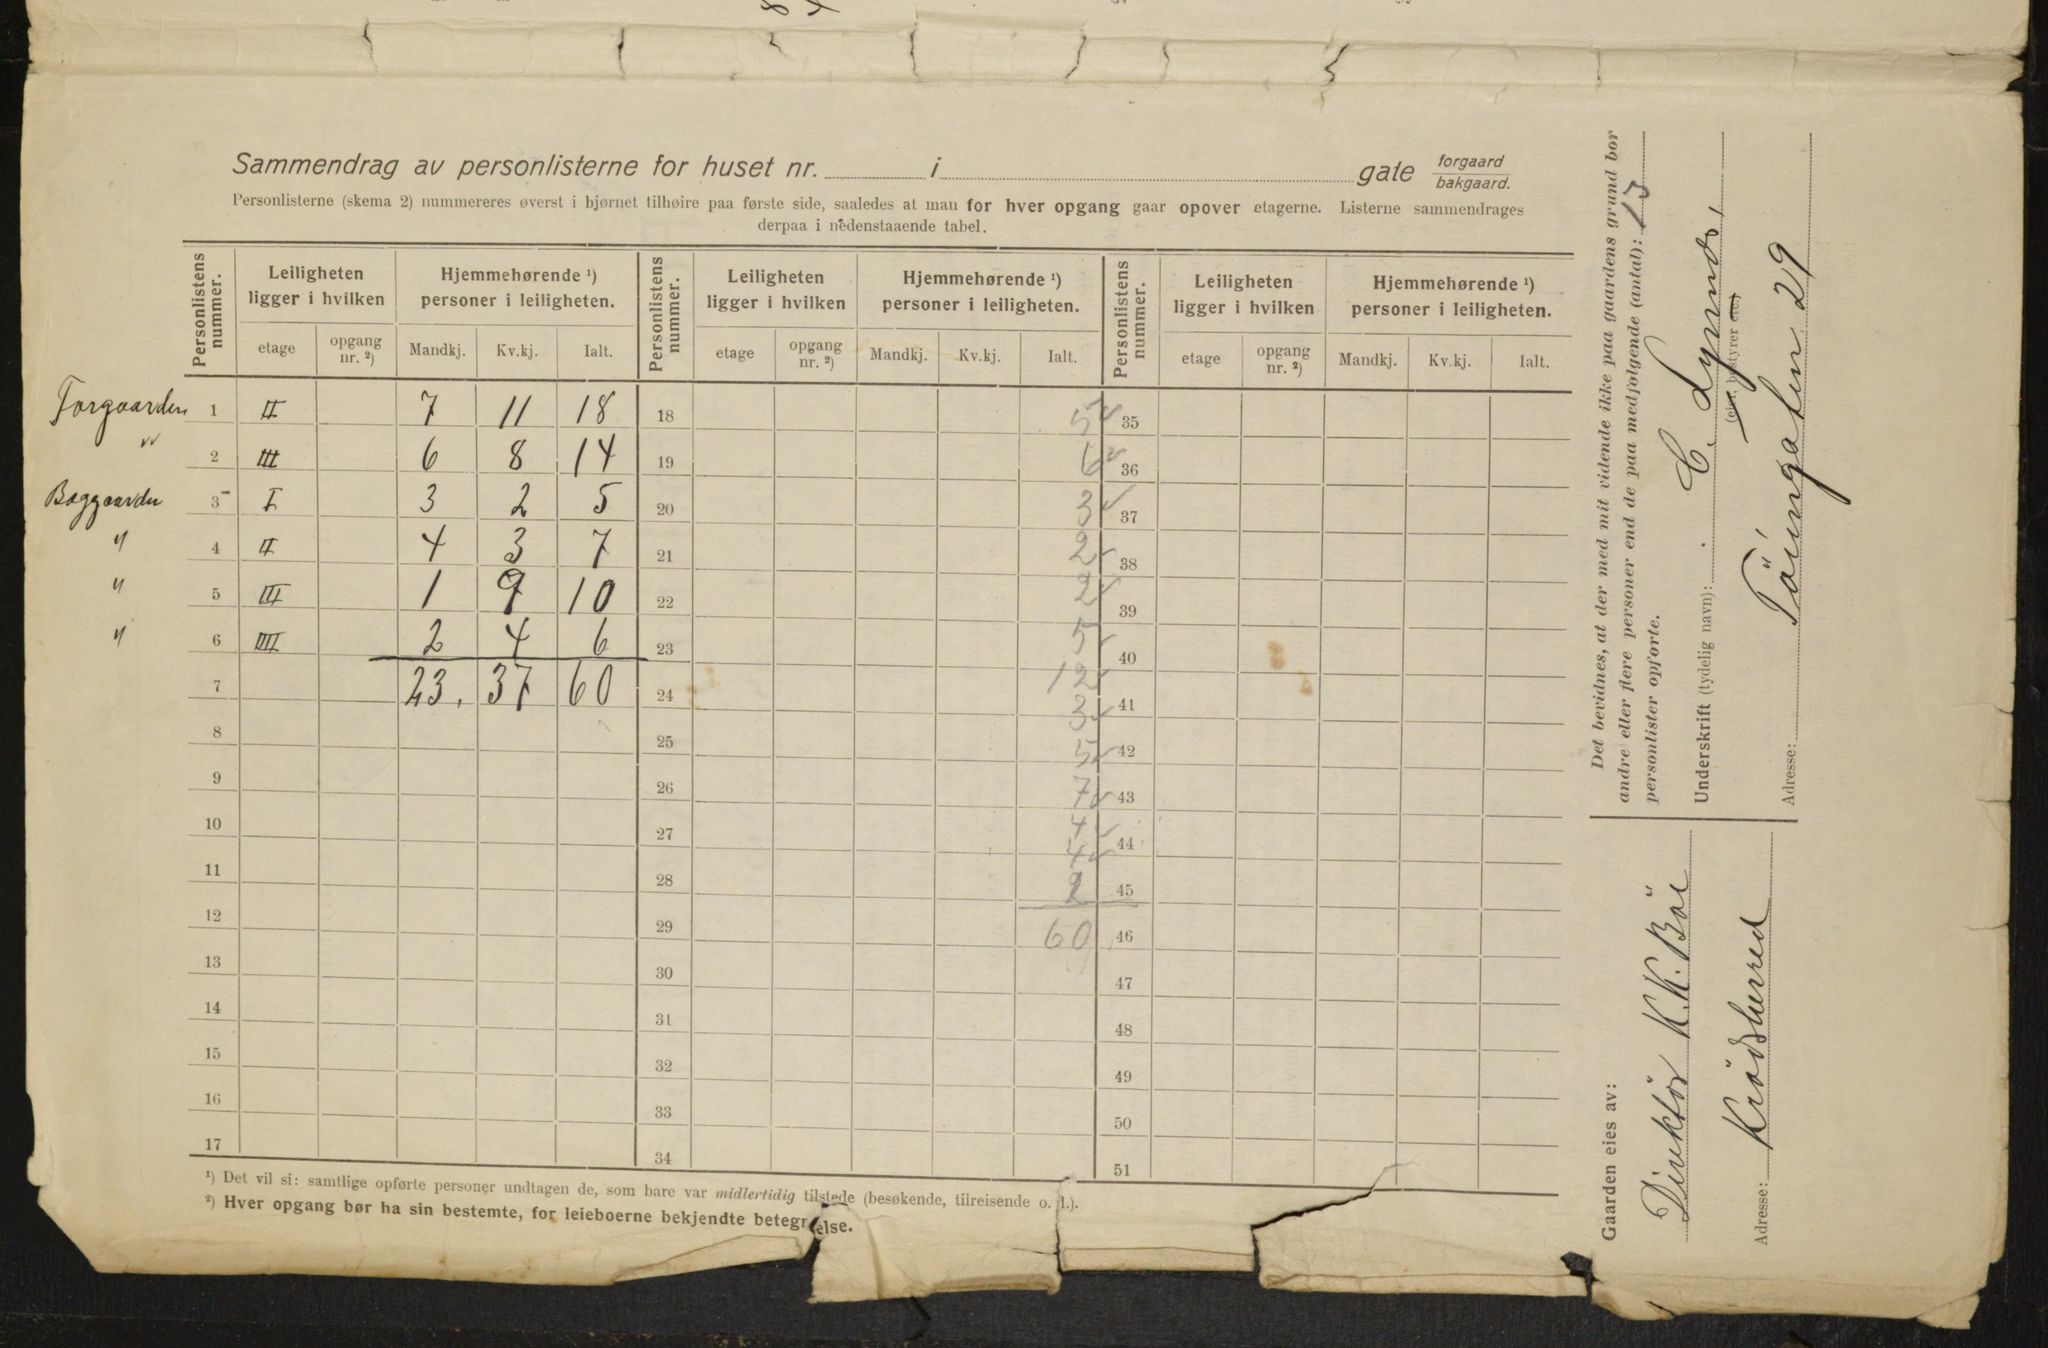 Sammendrag av personlisterne for huset nr. i gate forgaard
bakgaard.
Personlisterne (skema 2) nummereres øverst i hjørnet tilhøire paa første side, saaledes at man for hver opgang gaar opover etagerne. Listerne sammendrages
derpaa i nedenstaaende tabel.
Personlistens nummer. Leiligheten ligger i hvilken Hjemmehørende ¹) personer i leiligheten. Personlistens nummer. Leiligheten ligger i hvilken Hjemmehørende ¹) personer i leiligheten. Personlistens nummer. Leiligheten ligger i hvilken Hjemmehørende ¹) personer i leiligheten.
etage opgang nr. ²) Mandkj. Kv.kj. Ialt. etage opgang nr. ²) Mandkj. Kv.kj. Ialt. etage opgang nr. ²) Mandkj. Kv.kj. Ialt.
Forgaarden 1 II 7 11 18 18 5 35
" 2 III 6 8 14 19 6 36
Baggaarden 3 I 3 2 5 20 3 37
" 4 II 4 3 7 21 2 38
" 5 III 1 9 10 22 2 39
" 6 IIII 2 4 6 23 5 40
7 23. 37 60 24 12 41
8 3
25 5 42
9 26 7 43
10 27 4 44
11 4
28 2 45
12 29 60 46
13 30 47
14 31 48
15 32 49
16 33 50
17 34 51
¹) Det vil si: samtlige opførte personer undtagen de, som bare var midlertidig tilstede (besøkende, tilreisende o. l.).
²) Hver opgang bør ha sin bestemte, for leieboerne bekjendte betegnelse.
Det bevidnes, at der med mit vidende ikke paa gaardens grund bor
andre eller flere personer end de paa medfølgende (antal): 13
personlister opførte.
Underskrift (tydelig navn): C. Lynnes,
(eier, bestyrer etc.)
Adresse: Töiengaten 29
Gaarden eies av:
Direktör K.K. Böe
Adresse: Krödsherred